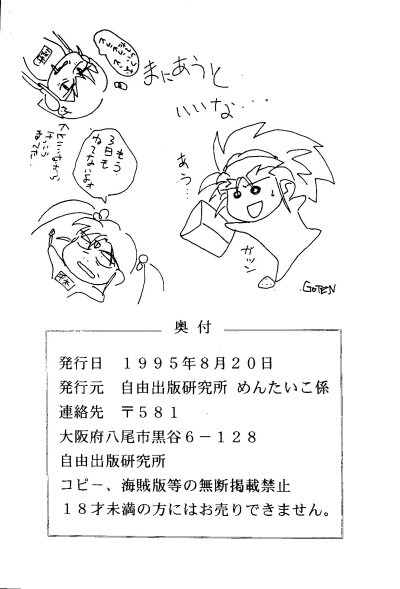 まにあうと
いいな・・・
もう
3日も
ねてないよォ
あう…
ガツン
GOTEN
奥付
発行日　１９９５年８月２０日
発行元　自由出版研究所 めんたいこ係
連絡先　〒５８１
大阪府八尾市黒谷６－１２８
自由出版研究所
コピー、海賊版等の無断掲載禁止
１８才未満の方にはお売りできません。